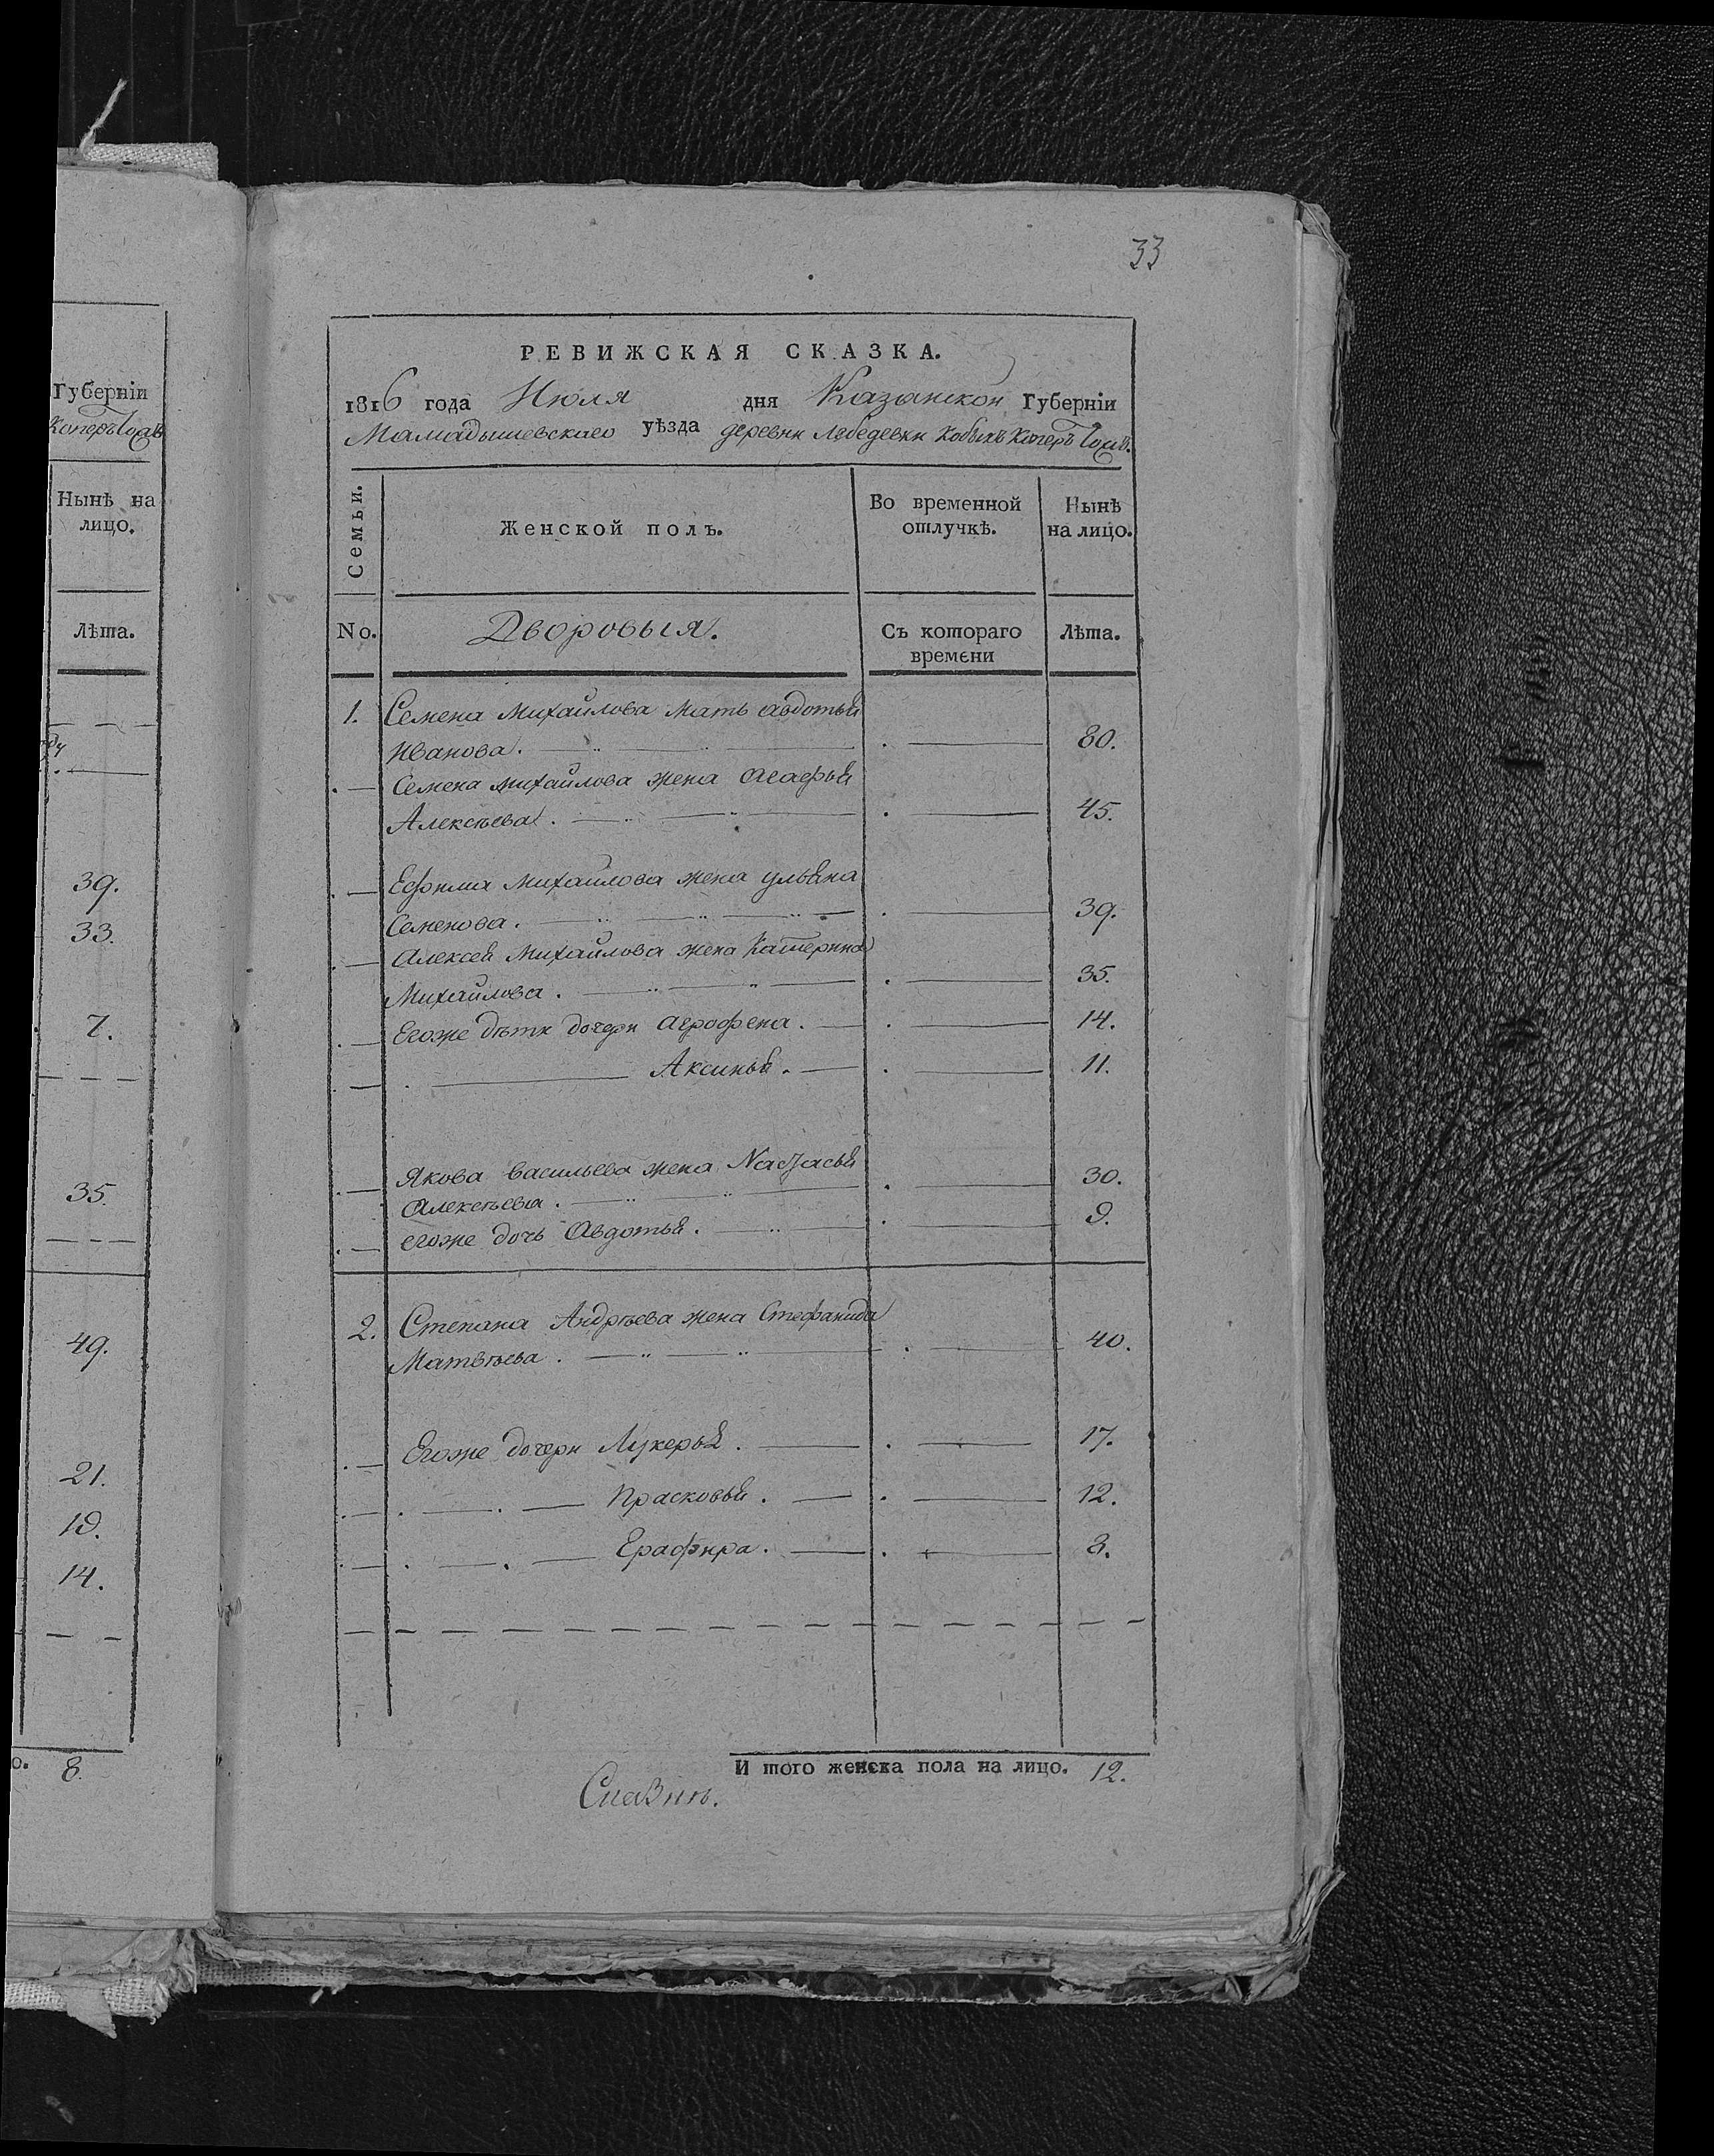 Губерніи
Ныне на
лицо.
Лѣта.
39.
33.
7.
35.
49.
21.
19.
14.
о. 8.
33
РЕВИЖСКАЯ СКАЗКА.
1816 года Июля дня Казанской Губерніи
Мамадышевскаго уѣзда деревни Лебедевки
Семьи.
Женской полъ.
Во временной отлучкѣ.
Нынѣ на лицо.
No.
Дворовыя.
Съ котораго времени
Лѣта.
1. Семена Михайлова мать авдотья
Иванова. 80.
Семена михайлова жена агафья
Алексѣева. 45.
Ефима Михайлова жена ульяна
Семенова. 39.
Алексея Михайлова жена Катерина
Михайлова. 35.
Егоже дѣти дочери агрофена. 14.
Аксинья. 11.
Якова васильева жена Настасья
алексѣева. 30.
егоже дочь Авдотья. 9.
2. Степана Андрѣева жена Стефанида
Матвѣева. 40.
Егоже дочери Лукерья. 17.
Прасковья. 12.
Ерафира. 8.
И того женска пола на лицо. 12.